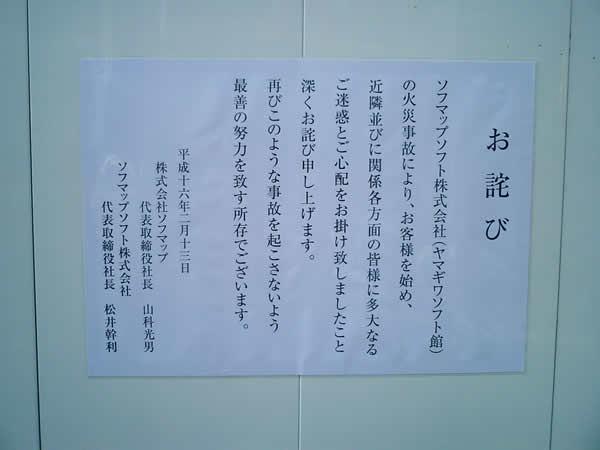 お詫び
ソフマップソフト株式会社(ヤマギワソフト館)
の火災事故により、お客様を始め、
近隣並びに関係各方面の皆様に多大なる
ご迷惑とご心配をお掛け致しましたこと
深くお詫び申し上げます。
再びこのような事故を起こさないよう
最善の努力を致す所存でございます。
平成十六年二月十三日
株式会社ソフマップ
代表取締役社長 山科光男
ソフマップソフト株式会社
代表取締役社長 松井幹利